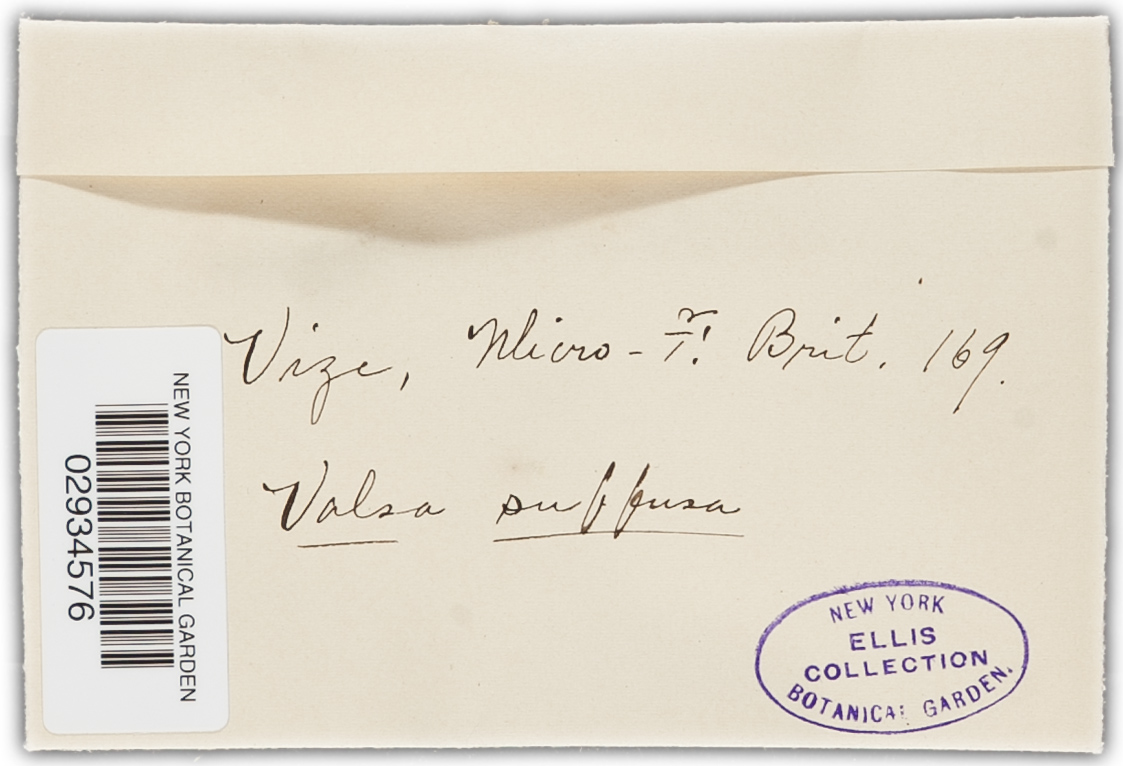 Vize, Micro-F. Brit. 169.
Valsa suffusa
NEW YORK BOTANICAL GARDEN
02934576
NEW YORK
ELLIS
COLLECTION
BOTANICAL GARDEN.